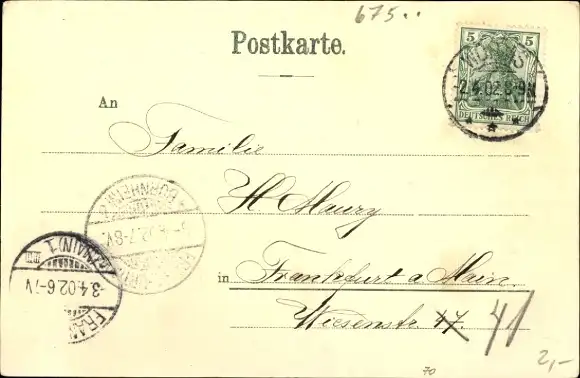 675..
Postkarte.
5 5
2.4.02.8-9N.
DEUTSCHES REICH
An
Familie
H Maury
in Frankfurt a Main.
Wiesenstr. 47. 41
BORNHEIM
02.7-8V.
(MAIN) 1
3.4.02.6-7V.
FRAN
70
2,-